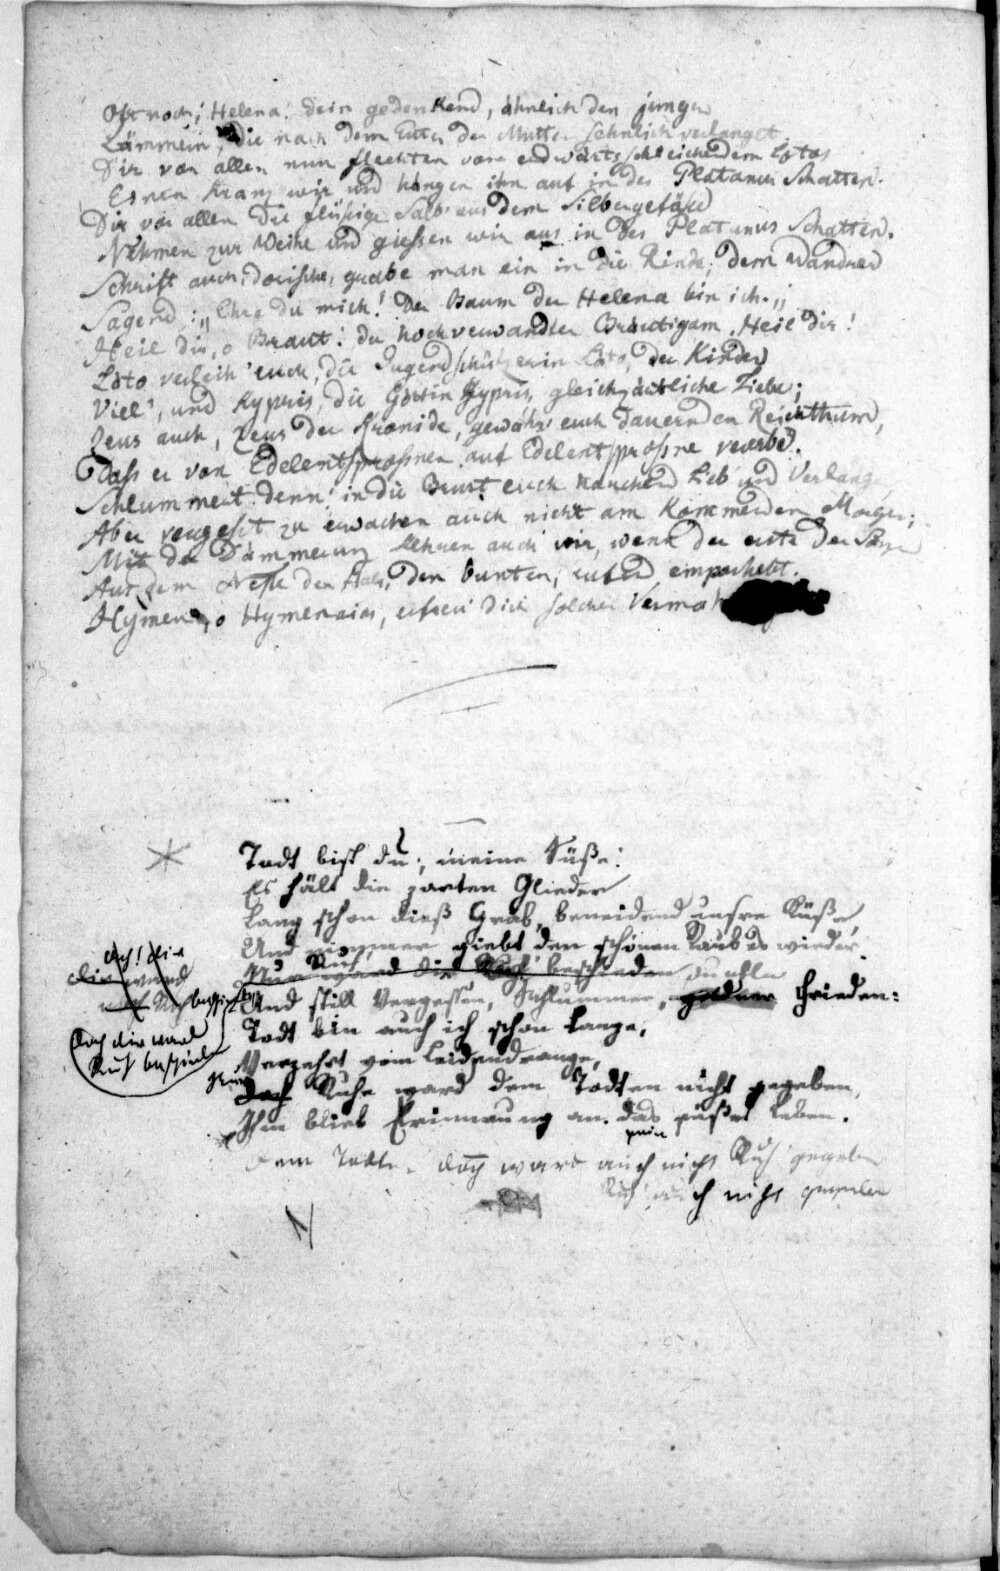 Oft noch, Helena! dein gedenkend, ähnlich den jungen
Lämmern, die nach dem Euter der Mutter sehnlich verlanget.
Dir vor allen nun flechten vom erdwärts schleichendem Lotos
Einen Kranz wir und hängen ihn auf in des Platanus Schatten.
Dir vor allen die flüßige Salb' aus dem Silbergefäße
Nehmen zur Weihe und giessen wir aus in des Platanus Schatten.
Schrift auch, dorische, grabe man ein in die Rinde, dem Wandrer
Sagend: „Ehre du mich! Der Baum der Helena bin ich.„
Heil dir, o Braut! du hochverwandter Bräutigam, Heil dir!
Läto verleih' euch, die Jugendschützerin Läto, der Kinder
Viel', und Kypris, die Göttin Kypris, gleichzärtliche Liebe;
Zeus auch, Zeus der Kronide, gewähr' euch dauernden Reichthum,
Dass er von Edelentsproßnen auf Edelentsproßne vererbe.
Schlummert denn! in die Brust euch hauchend Lieb' und Verlangen
Aber vergesst zu erwachen auch nicht am kommenden Morgen;
Mit der Dämmerung kehren auch wir, wenn der erste der Sänger
Aus dem Neste den Hals, den bunten, rufend emporhebt.
Hymen, o Hymenaios, erfreu' dich solcher
Todt bist du, meine Süße!
Es hält die zarten Glieder
Lang schon dieß Grab, beneidend unsre Küße,
Und nimmer giebt den schönen Raub es wieder.
Ruh,
Nur ward die Ruh' beschieden
Und still Vergessen, Schlummer, goldner Frieden:
Ach! dir
dir ward
doch dir ward
Ruh beschieden
Todt bin auch ich schon lange,
Verzehrt vom Leidendrange,
Doch Ruhe ward dem Todten nicht gegeben,
Ihm blieb Erinnerung an das süße Leben.
sein
dem Todten doch ward auch nicht Ruh gegeben
Ruh auch nicht gegeben